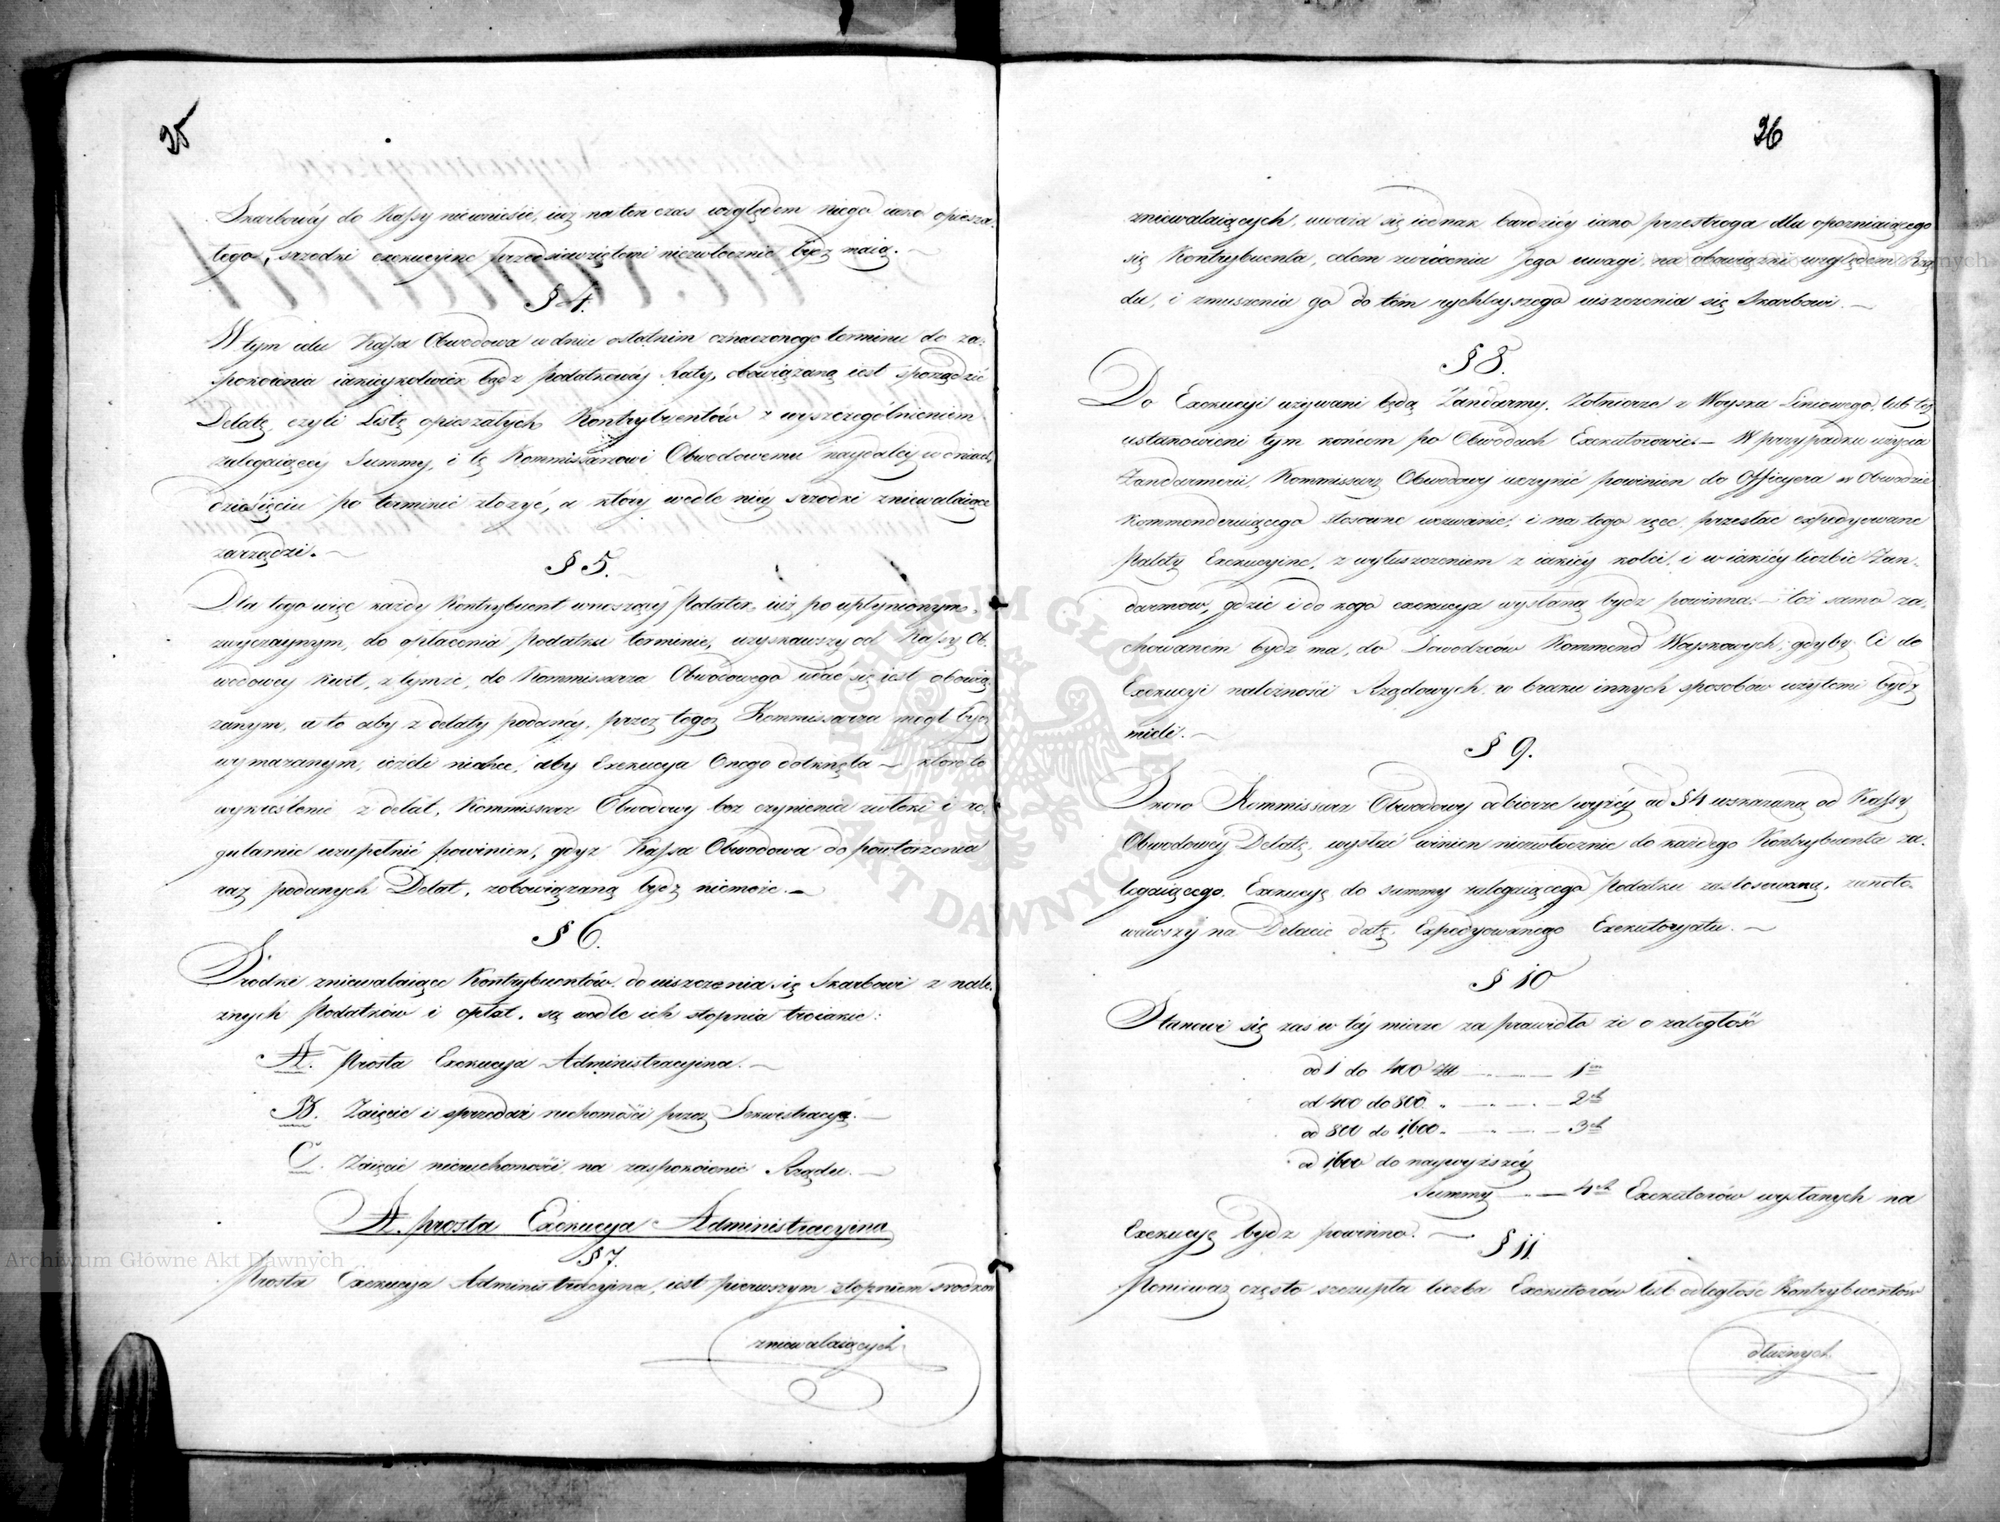 25
Skarbowéy do Kassy niewniesie, iuż na ten czas względem niego iako opiesza-
łego, srzodki exekucyine przedsięwziętemi niezwłocznie bydź maią.
§ 4.
W tym celu Kassa Obwodowa w dniu ostatnim oznaczonego terminu do za-
spokoienia iakieykolwiek bądź podatkowéy Raty, obowiązaną iest sporządzić
Delatę, czyli Listę opieszałych Kontrybuentów z wyszczególnieniem
zalegaiącéy Summy, i tę Kommissarzowi Obwodowemu naydaléy w dniach
dziesięciu po terminie złożyć, a który wedle niéy srzodki zniewalaiące
zarządzi.
§ 5.
Dla tego więc każdy Kontrybuent wnoszący Podatek, iuż po upłynionym
zwyczaynym, do opłacenia Podatku terminie, uzyskawszy od Kassy Ob-
wodowey kwit, z tymże, do Kommissarza Obwodowego udać się iest obowią-
zanym, a to aby z delaty podanéy, przez tegoż Kommissarza mógł bydź
wymazanym, ieżeli niechce, aby Exekucya Onego dotknęła – które to
wykreślenie z delat, Kommissarz Obwodowy bez czynienia zwłoki i re-
gularnie uzupełnić powinien, gdyż Kassa Obwodowa do powtórzenia
raz podanych Delat, zobowiązaną bydź niemoże.
§ 6.
Srodki zniewalaiące Kontrybuentów do uiszczenia się Skarbowi z nale-
żnych Podatków i opłat, są wedle ich stopnia troiakie:
A. Prosta Exekucya Administracyina.
B. Zaięcie i sprzedaż ruchomości przez Sekwestracyą.
C. Zaięcie nieruchomości na zaspokoienie Rządu.
A. prosta Exekucya Administracyina
§ 7.
Prosta Exekucya Administracyina, iest pierwszym stopniem srodków
zniewalaiących
26
zniewalaiących, uważa się iednak bardziéy iako przestroga dla opozniaiącego
się Kontrybuenta, celem zwrócenia Jego uwagi, na obowiązki względem Rzą-
du, i zmuszenia go do tém rychleyszego uiszczenia się Skarbowi.
§ 8.
Do Exekucyi używani będą Żandarmy, Żołnierze z Woyska Liniowego, lub też
ustanowieni tym końcem po Obwodach Exekutorowie – W przypadku użycia
Żandarmerii, Kommissarz Obwodowy uczynić powinien do Officyera w Obwodzie
Kommenderuiącego stosowne wezwanie, i na tego ręce, przesłać expedyowane
Palety Exekucyine, z wyłuszczeniem z iakiéy kolei, i w iakiéy liczbie Żan-
darmów, gdzie i do kogo exekucya wysłaną bydź powinna: – toż samo za-
chowaném bydź ma, do Dowodzców Kommend Woyskowych, gdyby Ci do
Exekucyi należności Rządowych, w braku innych sposobów użytemi bydź
mieli.
§ 9.
Skoro Kommissarz Obwodowy odbierze wyżéy ad § 4 wskazaną od Kassy
Obwodowéy Delatę, wysłać winien niezwłocznie do każdego Kontrybuenta za-
legaiącego, Exekucyę do summy zalegaiącego Podatku zastosowaną, zanoto-
wawszy na Delacie datę Expedyowanego Exekutoryatu.
§ 10
Stanowi się zaś w téy mierze za prawidło że o zaległość
od 1 do 400 złł ——— 1en
od 400 do 800 " ——— 2ch
od 800 do 1,600 " ——— 3ch
od 1,600 do naywyższéy
Summy ——— 4ch Exekutorów wysłanych na
Exekucyę bydź powinno.
§ 11
Ponieważ często szczupła liczba Exekutorów lub odległość Kontrybuentów
dłużnych
ARCHIWUM GŁÓWNE AKT DAWNYCH
Archiwum Główne Akt Dawnych